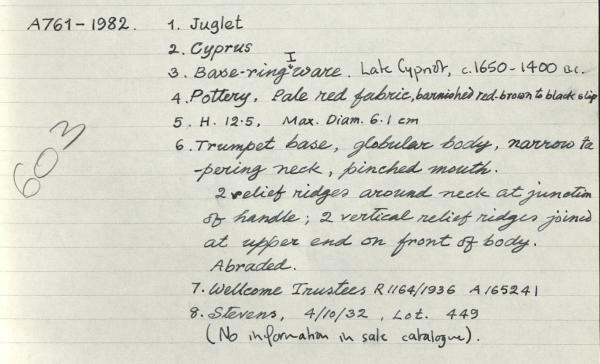 A761-1982. 1. Juglet
2. Cyprus
3. Base-ring I ware. Late Cypriot, c.1650-1400 B.C.
4. Pottery, Pale red fabric, burnished red-brown to black slip
5. H. 12.5, Max. Diam. 6.1 cm
6. Trumpet base, globular body, narrow ta
-pering neck, pinched mouth.
2 relief ridges around neck at junction
of handle; 2 vertical relief ridges joined
at upper end on front of body.
Abraded.
7. Wellcome Trustees R1164/1936 A165241
8. Stevens, 4/10/32, Lot. 449
(No information in sale catalogue).
603